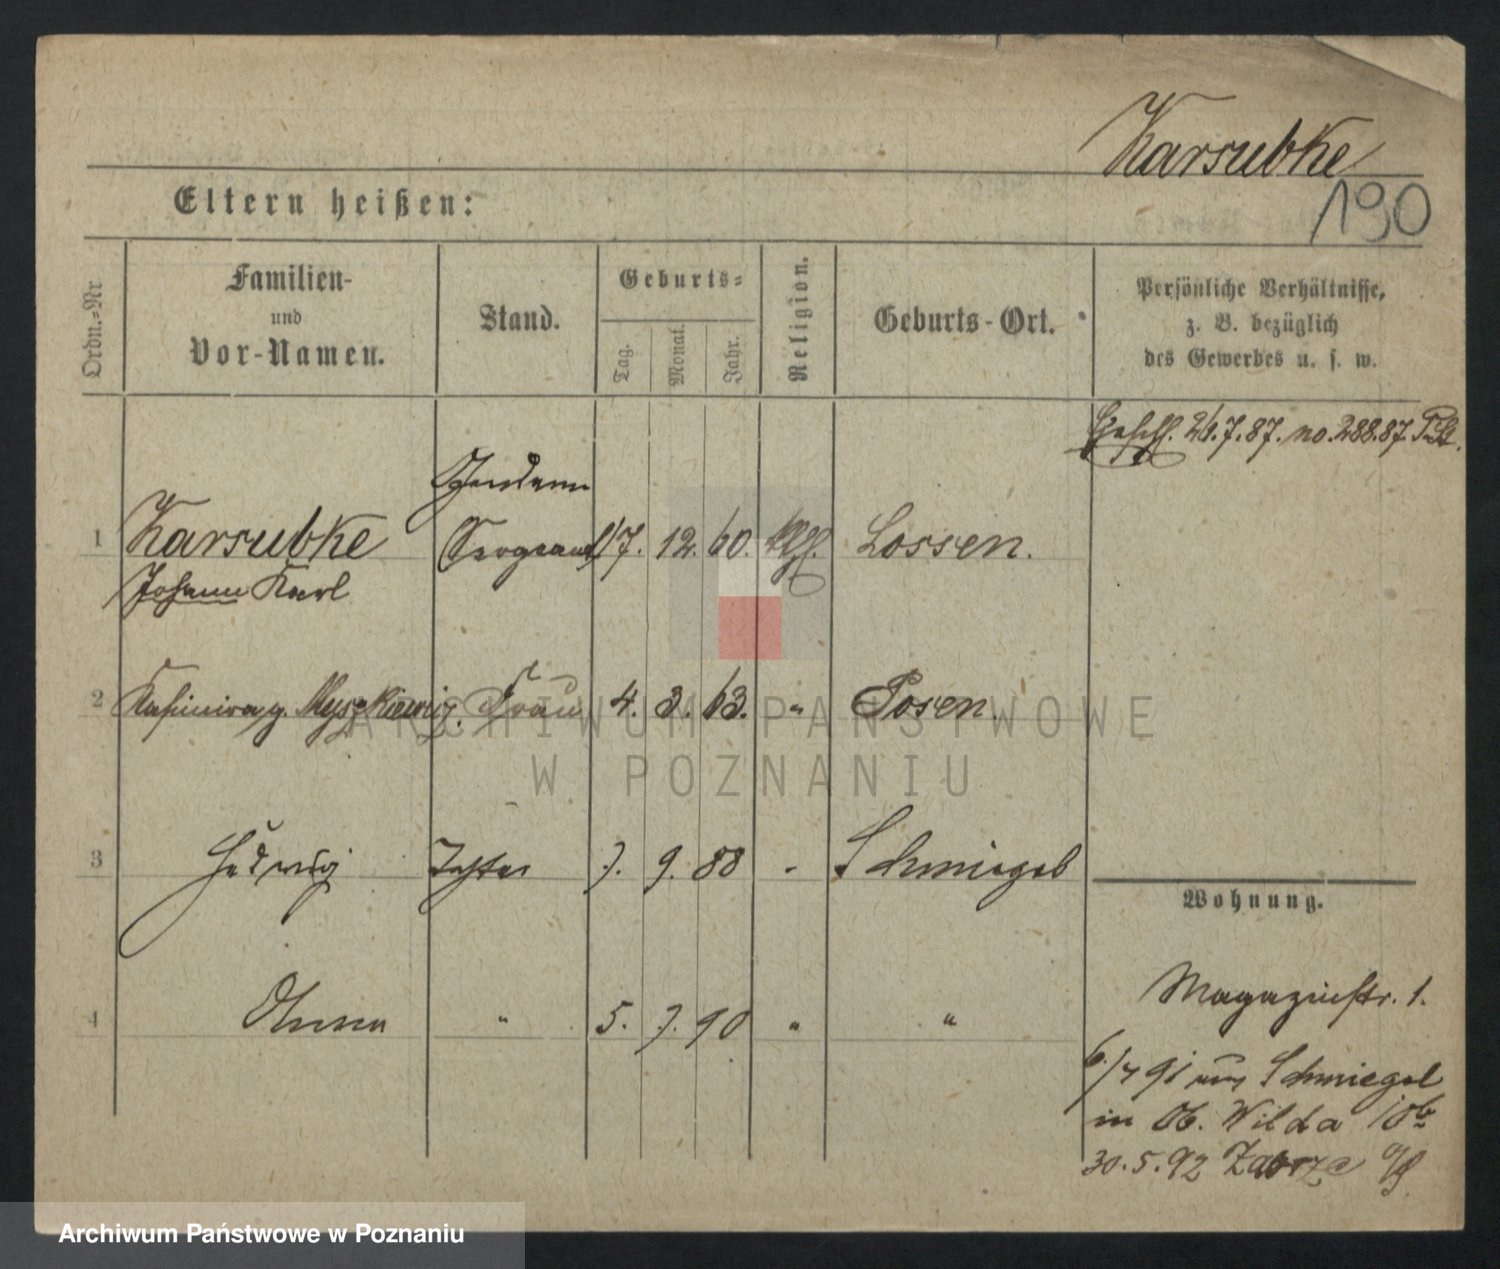 Karsubke
190
Eltern heißen:
Ordn.=Nr
Familien-
und
Vor-Namen.
Stand.
Geburts=
Tag.
Monat.
Jahr.
Religion.
Geburts-Ort.
Persönliche Verhältnisse,
z. B. bezüglich
des Gewerbes u. s. w.
Geschl. 26.7.87. no. 288.87. P. St.
Gendarm
1 Karsubke Sergeant 17. 12. 60. kth. Lossen.
Johann Karl
2 Kasimira g. Myszkiewicz. Frau 4. 3. 63. " Posen.
ARCHIWUM PAŃSTWOWE
W POZNANIU
3 Hedwig Tochter 7. 9. 88 " Schmiegel
Wohnung.
4 Anna " 5. 7. 90 " "
Magazinstr. 1.
6/4 91 aus Schmiegel
in Ob. Wilda 10b
30.5.92 Zabrze O/S.
Archiwum Państwowe w Poznaniu